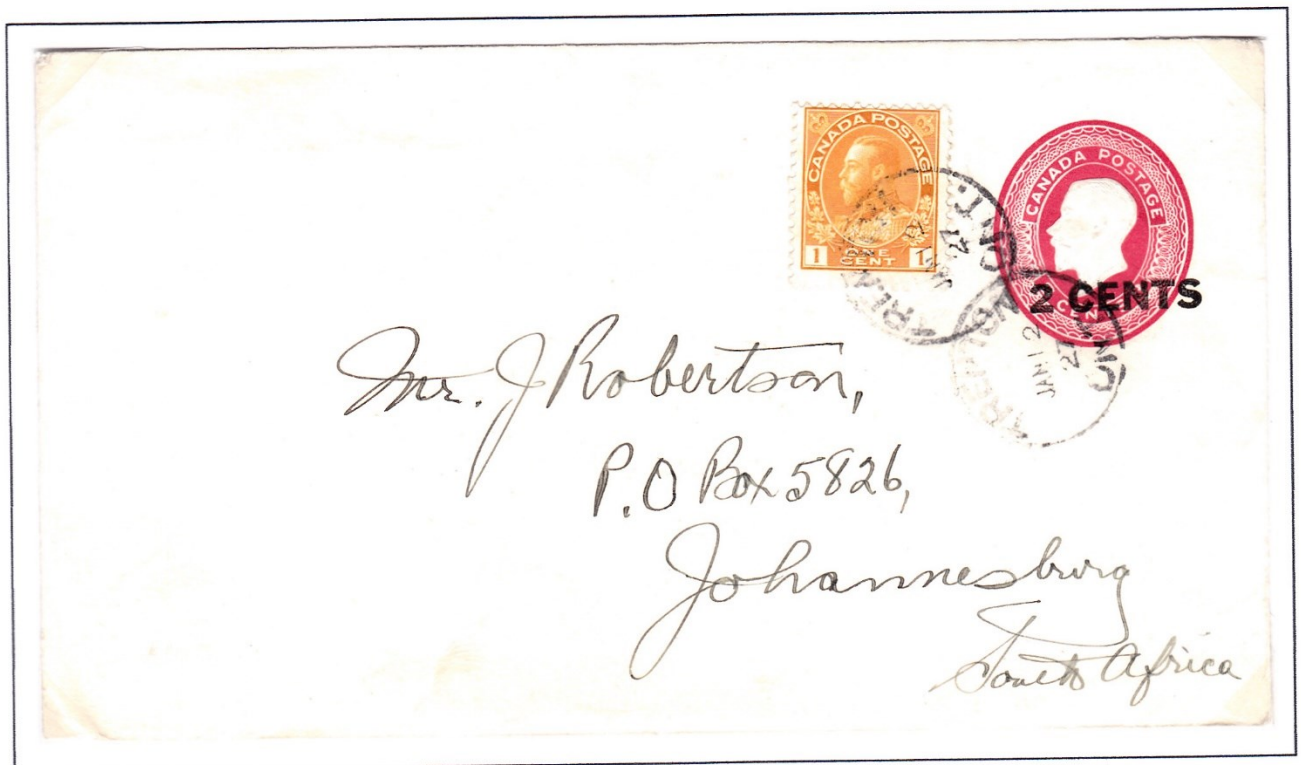 CANADA POSTAGE
1 ONE CENT 1
CANADA POSTAGE
2 CENTS
CENTS
ONT.
JAN 12
27
JAN 12
27
ONT.
Mr. J Robertson,
P.O Box 5826,
Johannesburg
South Africa